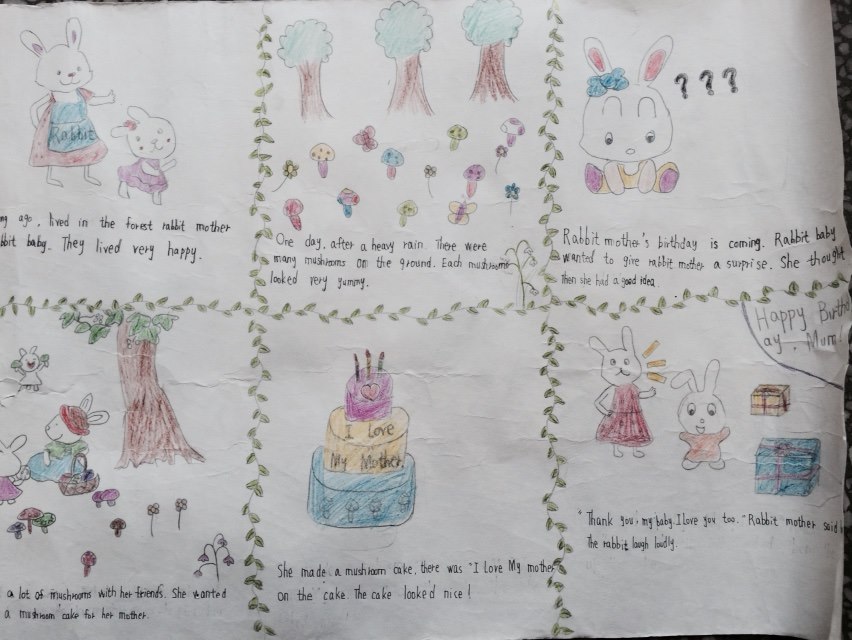 Rabbit
ago, lived in the forest rabbit mother
baby. They lived very happy.
One day, after a heavy rain. There were
many mushrooms on the ground. Each mushrooms
looked very yummy.
? ? ?
Rabbit mother's birthday is coming. Rabbit baby
wanted to give rabbit mother a surprise. She thought
Then she had a good idea.
a lot of mushrooms with her friends. She wanted
a mushroom cake for her mother.
I love
My Mother
She made a mushroom cake, there was "I Love My mother
on the cake. The cake looked nice!
Happy Birth
ay, Mum!
"Thank you, my baby. I love you too. "Rabbit mother said
The rabbit laugh loudly.